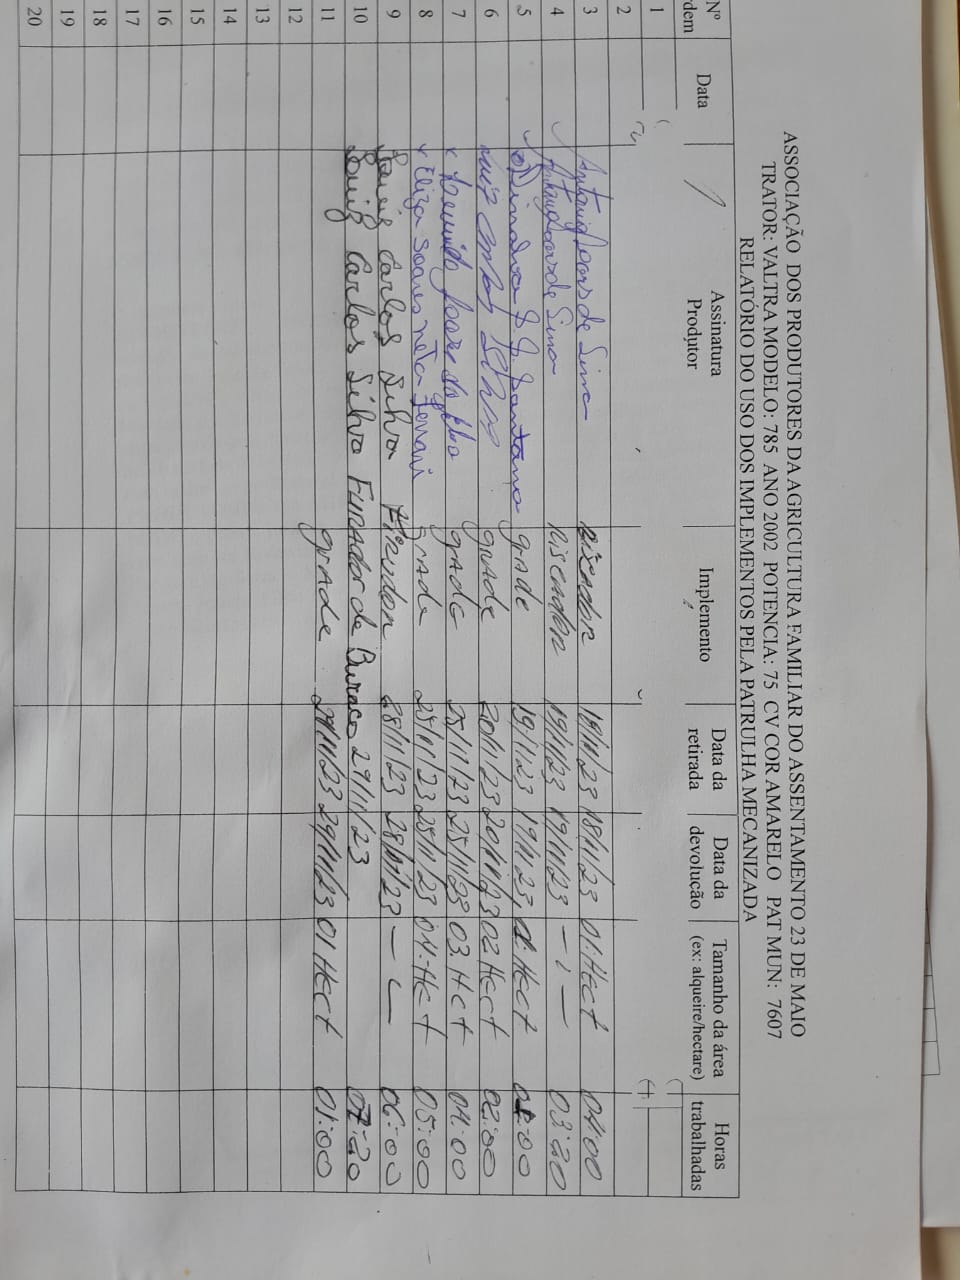 ASSOCIAÇÃO DOS PRODUTORES DA AGRICULTURA FAMILIAR DO ASSENTAMENTO 23 DE MAIO
TRATOR: VALTRA MODELO: 785 ANO 2002 POTENCIA: 75 CV COR AMARELO PAT MUN: 7607
RELATÓRIO DO USO DOS IMPLEMENTOS PELA PATRULHA MECANIZADA
Nº dem Data Assinatura Produtor Implemento Data da retirada Data da devolução Tamanho da área (ex: alqueire/hectare) Horas trabalhadas
1
2
3 18/11/23 18/11/23 01.Hect 04:00
4 19/11/23 19/11/23 03:20
5 grade 19/11/23 19/11/23 Hect 01:00
6 Luiz Carlos Silva grade 20/11/23 20/11/23 02.Hect 02:00
7 grade 25/11/23 25/11/23 03.Hct 04:00
8 x Eliza Soares neta Ferrari grade 25/11/23 25/11/23 04.Hct 05:00
9 Luis Carlos Silva 28/11/23 28/11/23 06:00
10 Luiz Carlos Silva Furador de Buraco 29/11/23 07:20
11 grade 29/11/23 29/11/23 01 Hect 01:00
12
13
14
15
16
17
18
19
20